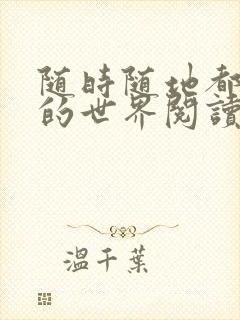 随時随地都
的世界閱讀
溫千葉